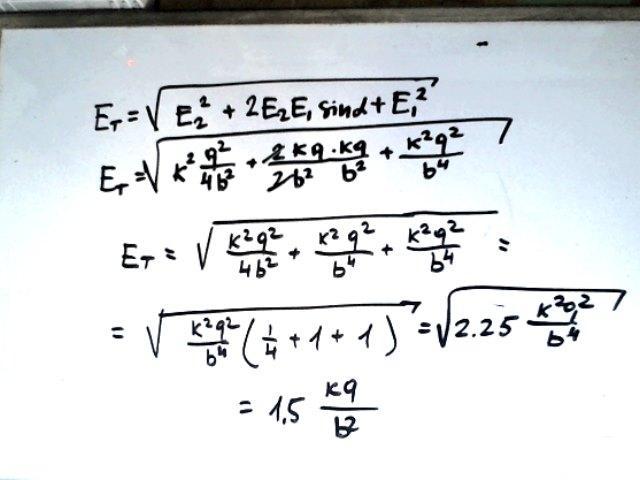 E_T = √(E₂² + 2E₂E₁ sinα + E₁²)
E_T = √(k² q²/4b² + 2kq·kq/2b² b² + k²q²/b⁴)
E_T = √(k²q²/4b² + k²q²/b⁴ + k²q²/b⁴) =
= √(k²q²/b⁴ (1/4 + 1 + 1)) = √(2.25 k²q²/b⁴)
= 1,5 kq/b²